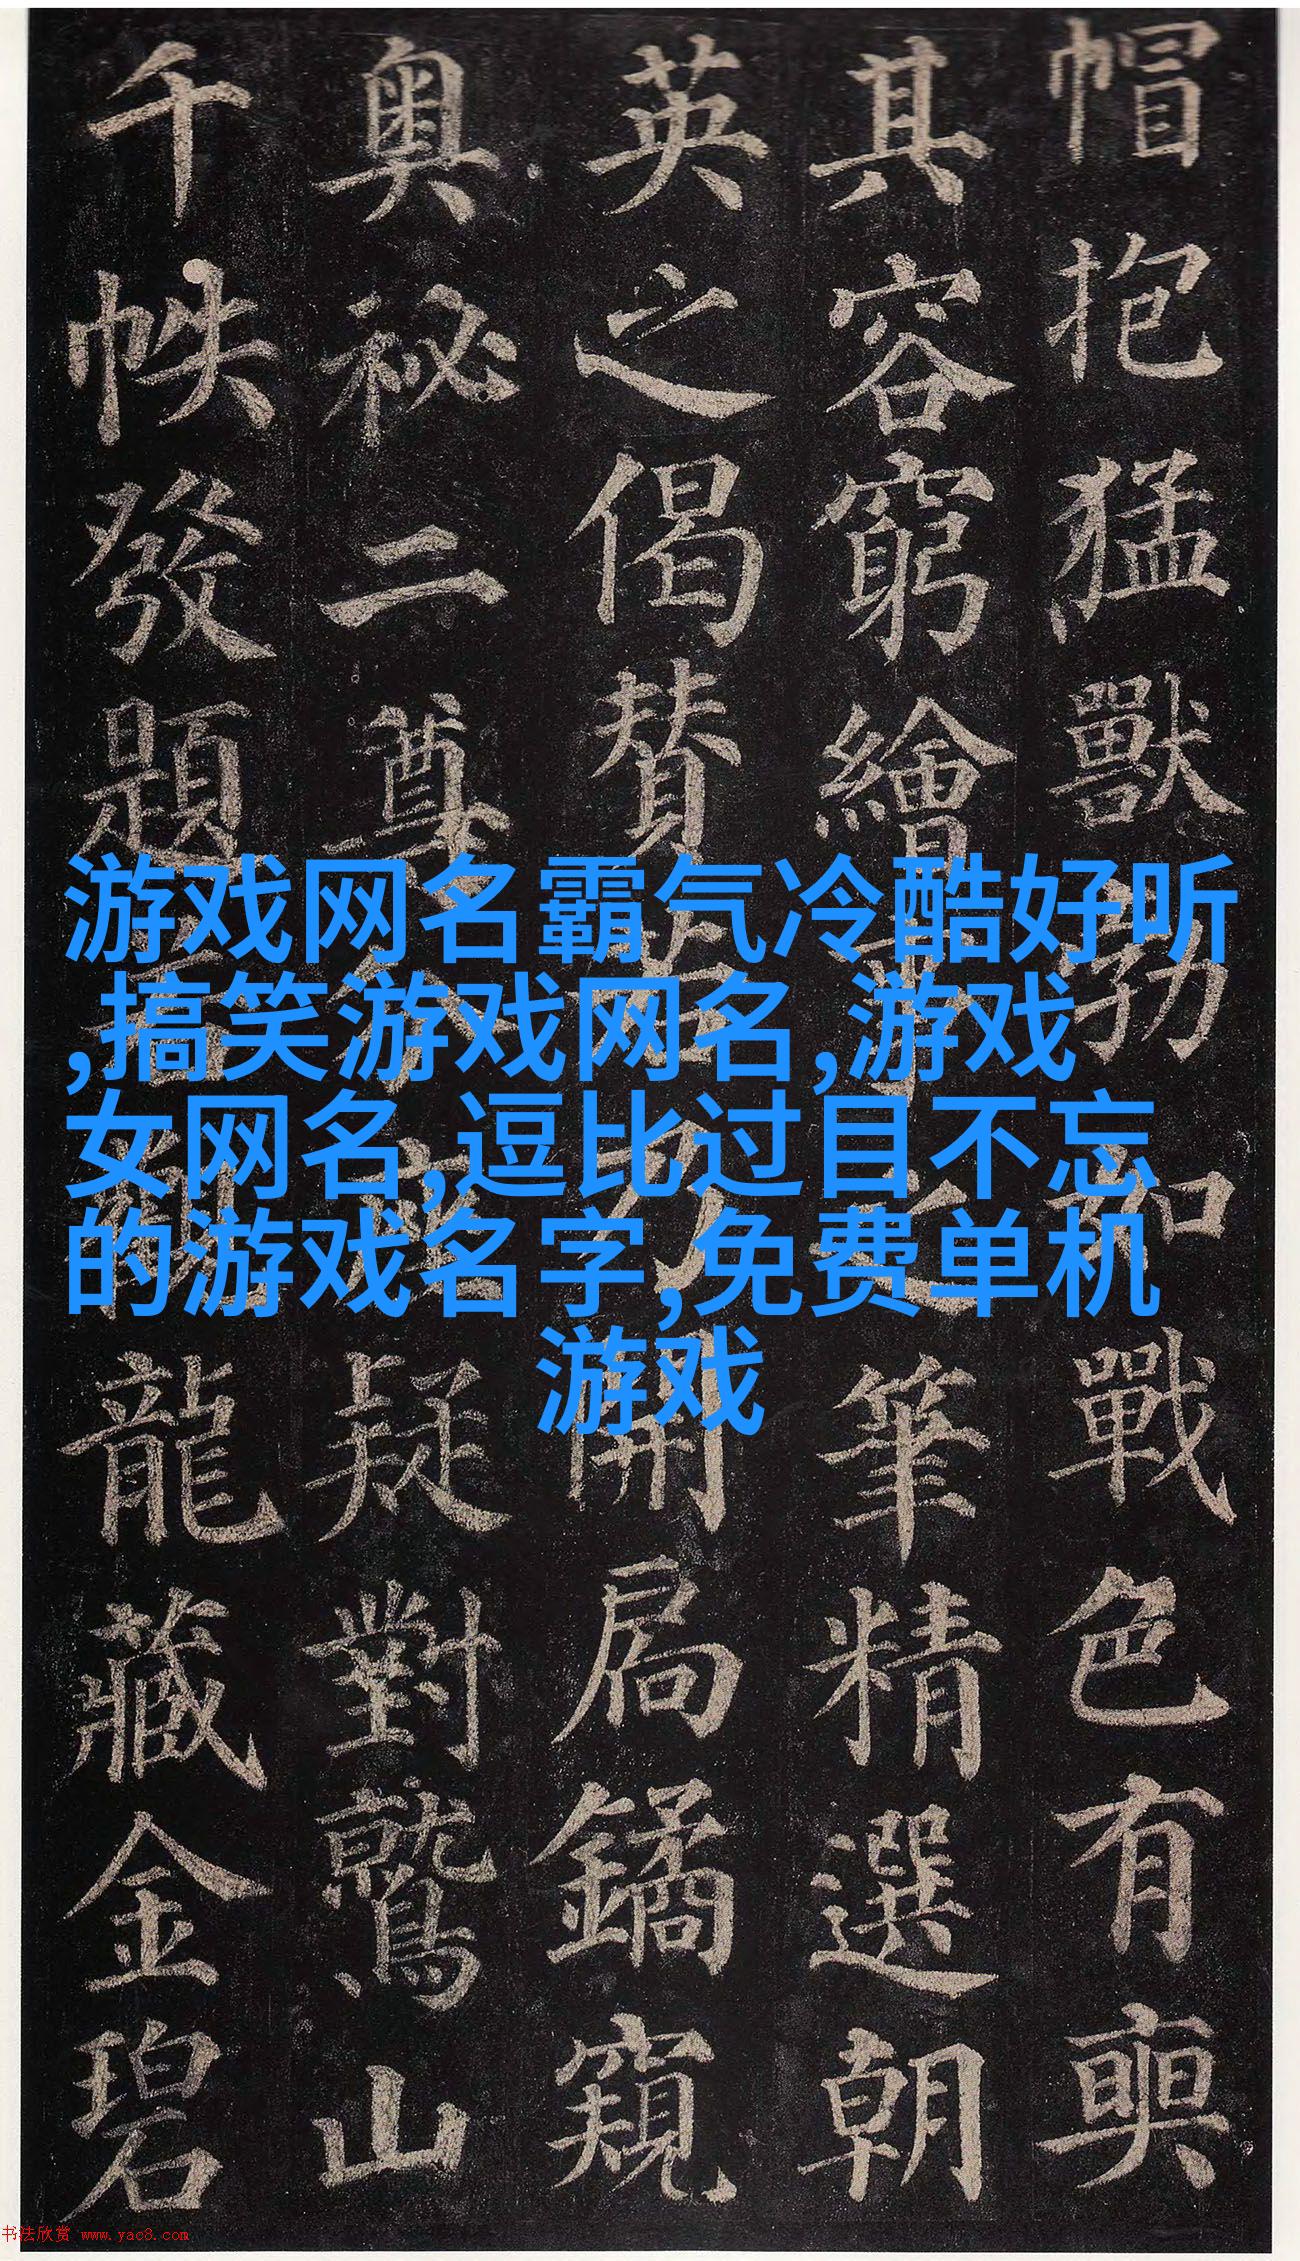 帽抱猛獸勃如戰色有奭
其容窮繪事之筆精選朝
英之偈贊若乃開扃鐍窺
奥祕二尊分座疑對鷲山
千帙發題若觀龍藏金碧
游戏网名霸气冷酷好听
,搞笑游戏网名,游戏
女网名,逗比过目不忘
的游戏名字,免费单机
游戏
书法欣赏 www.yac8.com